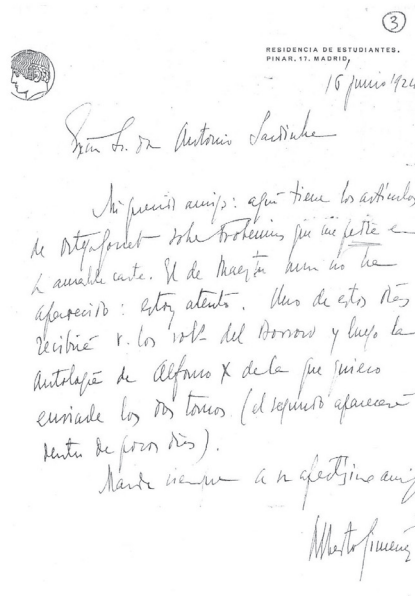 3
RESIDENCIA DE ESTUDIANTES.
PINAR, 17. MADRID,
16 junio 1924
Exmo Sr. Don Antonio Sardinha
Mi querido amigo: aquí tiene los artículos
de Ortega Gasset sobre Frobenius que me pedía en
su amable carta. El de Maeztu aun no ha
aparecido: estoy atento. Uno de estos días
recibirá V. los vols. del y luego la
Antología de Alfonso X de la que quiero
enviarle los dos tomos (el segundo aparecerá
dentro de pocos días).
Mande siempre a su afectísimo amigo
Alberto Jiménez